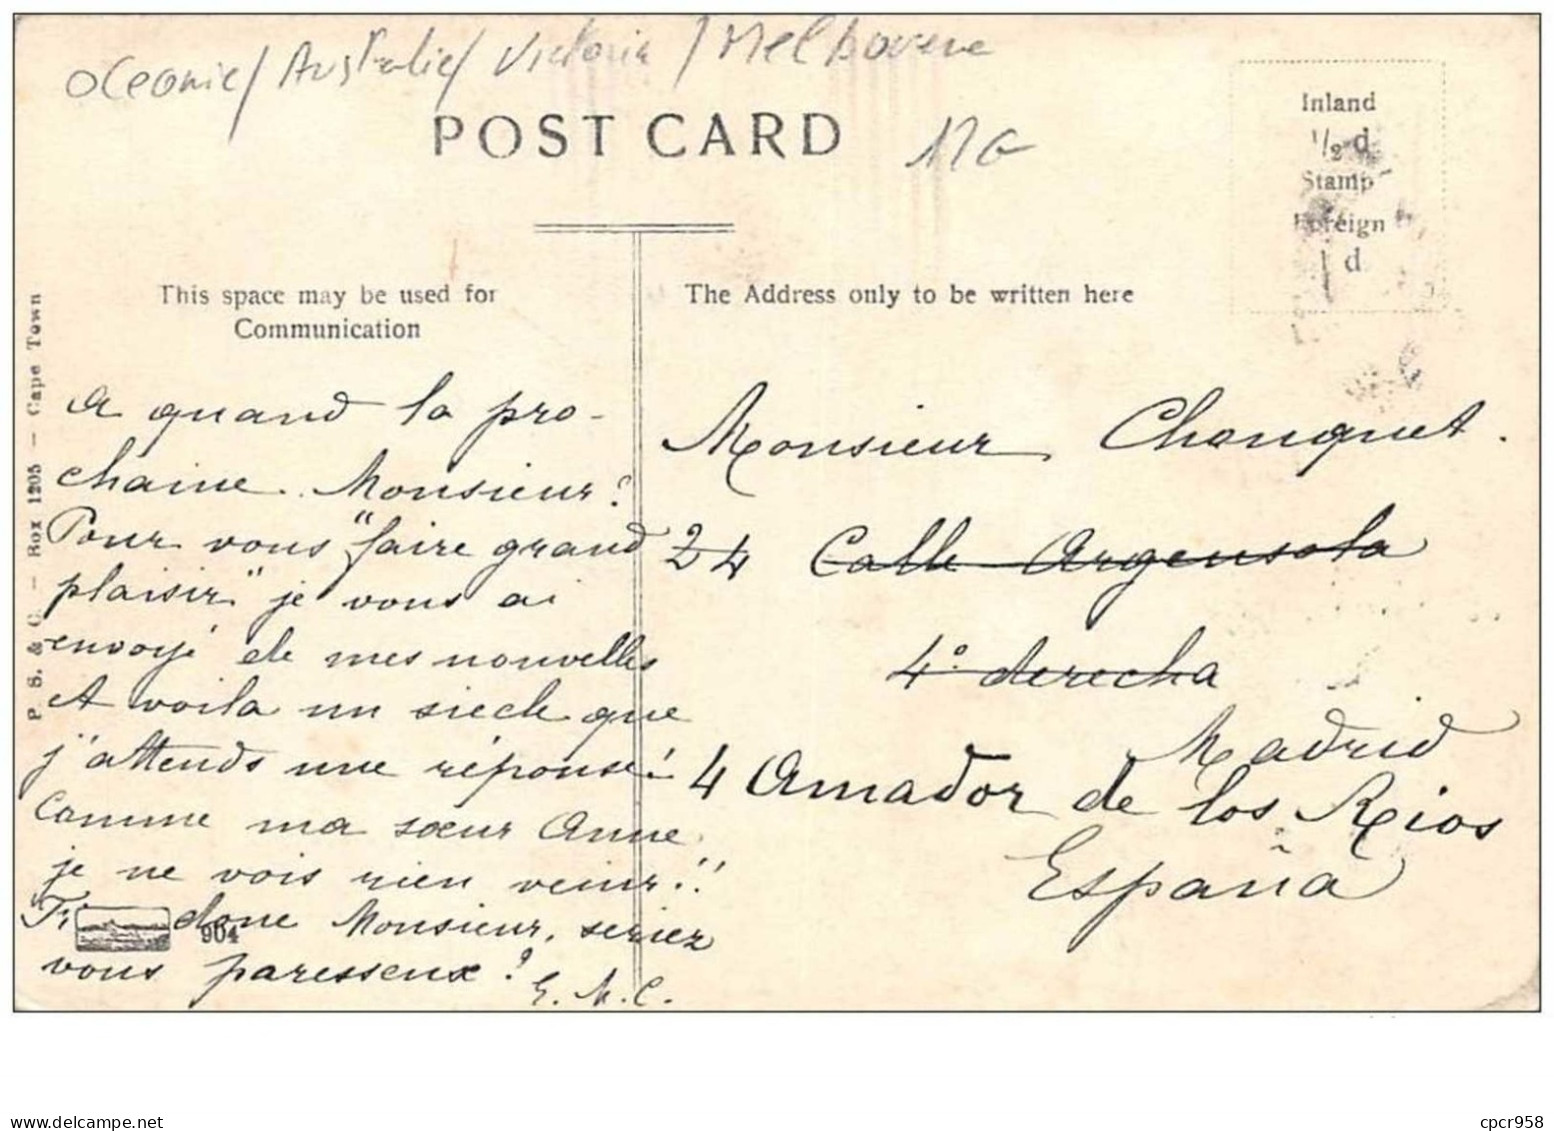 Oceanie / Australie / Victoria / Melbourne
POST CARD
Inland
1/2 d
Stamp
Foreign
1 d
This space may be used for
Communication
The Address only to be written here
P. S. & C. – Box 1205 – Cape Town
A quand la pro-
chaine Monsieur?
Pour vous "faire grand
plaisir" je vous ai
envoyé de mes nouvelles
et voila un siecle que
j'attends une réponse!
Comme ma sœur Anne
je ne vois rien venir!!
donc Monsieur, seriez
vous paresseux?
E. M. C.
904
Monsieur Chouquet.
24 Calle Argensola
4º derecha
Madrid
4 Amador de los Rios
España
delcampe.net
cpcr958